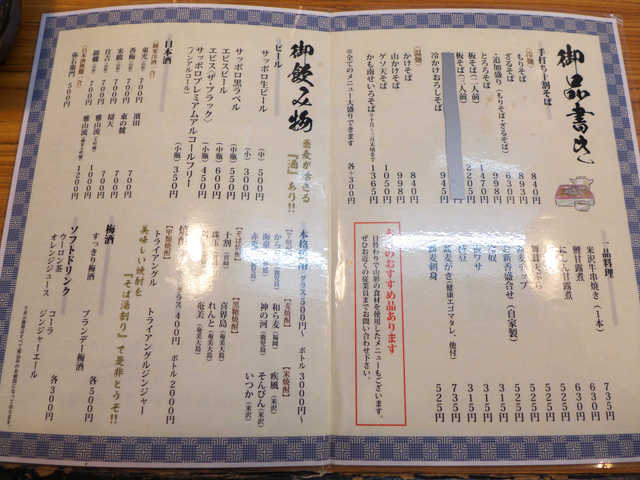 御品書き
手打ち十割そば
もりそば 840円
ざるそば 893円
追加盛り（もりそば・ざるそば） 630円
とろろそば 998円
板そば（二人前） 1470円
板そば（三人前） 2205円
冷かけおろしそば 945円
かけそば 840円
山かけそば 998円
ゲソ天そば 1050円
かも南せいろそば 1365円
※全てのメニュー大盛りできます 各+300円
一品料理
米沢牛串焼き（1本） 735円
鯉甘露煮 630円
にしん甘露煮 630円
お新香盛合せ（自家製）
525円
525円
525円
315円
315円
315円
蕎麦がき（健康エゴマタレ、他付） 735円
蕎麦刺身 525円
おすすめ品あります
日替わりで山形の食材を使用したメニューもございます。
ぜひお近くの従業員までお問い合わせ下さい。
御飲み物
蕎麦が活きる
『酒』あり!!
ビール
サッポロ生ビール （中）500円
（小）300円
サッポロ黒ラベル （中瓶）550円
エビスビール （中瓶）600円
エビス〈ザ・ブラック〉 （小瓶）450円
サッポロプレミアムアルコールフリー
（ノンアルコール） （小瓶）350円
日本酒
東光 700円
香梅 700円
米鶴 700円
住吉 700円
錦爛 700円
弥右衛門 500円
浜田 700円
東の麓 700円
樽天 700円
雅山流 1000円
雅山流 1200円
本格焼酎 グラス 500円〜 ボトル 3000円〜
和ら麦（福岡）
神の河（鹿児島）
十割
珠玉
喜界島（奄美大島）
れんと（奄美大島）
奄美（奄美大島）
疾風（米沢）
そんぴん（米沢）
いつか（米沢）
グラス 400円 ボトル 2000円
トライアングル
トライアングルジンジャー
美味しい焼酎を
『そば湯割り』で是非どうぞ!!
梅酒
すっきり梅酒
ブランデー梅酒 各500円
ソフトドリンク
ウーロン茶
オレンジジュース
コーラ
ジンジャーエール 各300円